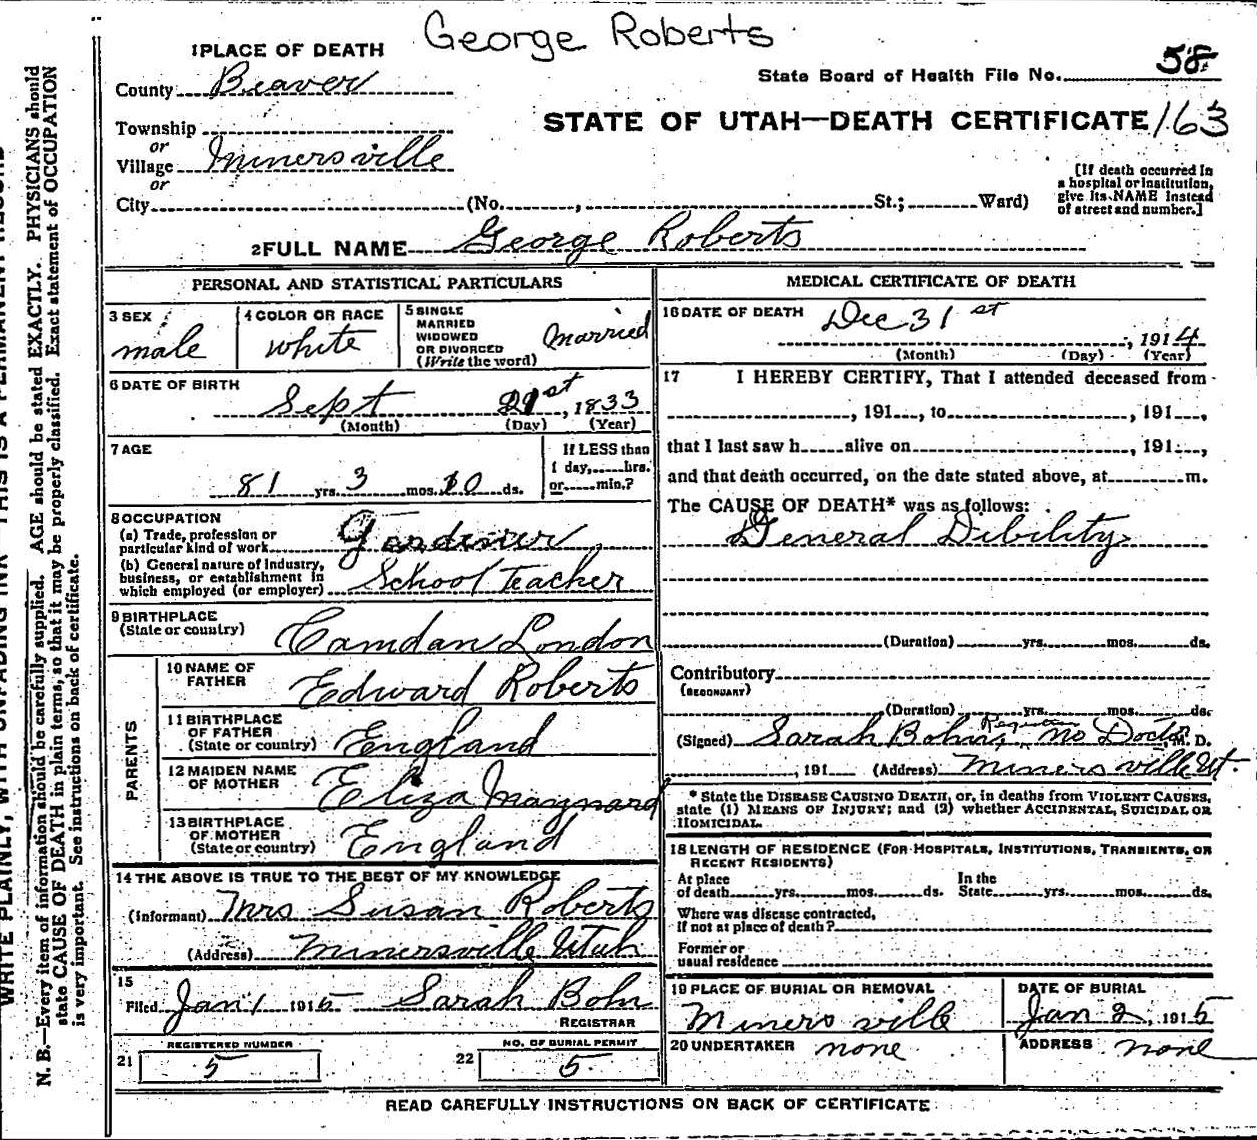 George Roberts
1 PLACE OF DEATH
State Board of Health File No. 58
County Beaver
STATE OF UTAH—DEATH CERTIFICATE 163
Township
or
Village Minersville
or
City (No. , St.; Ward)
[If death occurred in
a hospital or institution,
give its NAME instead
of street and number.]
2 FULL NAME George Roberts
PERSONAL AND STATISTICAL PARTICULARS
3 SEX
male
4 COLOR OR RACE
white
5 SINGLE
MARRIED
WIDOWED
OR DIVORCED
(Write the word)
Married
6 DATE OF BIRTH
Sept 21st, 1833
(Month) (Day) (Year)
7 AGE
81 yrs. 3 mos. 10 ds.
If LESS than
1 day,......hrs.
or......min.?
8 OCCUPATION
(a) Trade, profession or
particular kind of work Gardiner
(b) General nature of industry,
business, or establishment in
which employed (or employer) School Teacher
9 BIRTHPLACE
(State or country) Camdan London
PARENTS
10 NAME OF
FATHER Edward Roberts
11 BIRTHPLACE
OF FATHER
(State or country) England
12 MAIDEN NAME
OF MOTHER Eliza Maynard
13 BIRTHPLACE
OF MOTHER
(State or country) England
14 THE ABOVE IS TRUE TO THE BEST OF MY KNOWLEDGE
(Informant) Mrs Susan Roberts
(Address) Minersville Utah
15
Filed Jan 1 1915 Sarah Bohn
REGISTRAR
REGISTERED NUMBER
21 5
NO. OF BURIAL PERMIT
22 5
MEDICAL CERTIFICATE OF DEATH
16 DATE OF DEATH Dec 31st
, 1914
(Month) (Day) (Year)
17 I HEREBY CERTIFY, That I attended deceased from
, 191 , to , 191 ,
that I last saw h alive on , 191 ,
and that death occurred, on the date stated above, at m.
The CAUSE OF DEATH* was as follows:
General Dibility
(Duration) yrs. mos. ds.
Contributory
(SECONDARY)
(Duration) yrs. mos. ds.
(Signed) Sarah Bohn, Registrar no Doctor, M. D.
, 191 (Address) Minersville Ut.
* State the DISEASE CAUSING DEATH, or, in deaths from VIOLENT CAUSES,
state (1) MEANS OF INJURY; and (2) whether ACCIDENTAL, SUICIDAL OR
HOMICIDAL.
18 LENGTH OF RESIDENCE (FOR HOSPITALS, INSTITUTIONS, TRANSIENTS, OR
RECENT RESIDENTS)
At place
of death yrs. mos. ds.
In the
State yrs. mos. ds.
Where was disease contracted,
if not at place of death?
Former or
usual residence
19 PLACE OF BURIAL OR REMOVAL
Minersville
DATE OF BURIAL
Jan 2, 1915
20 UNDERTAKER none
ADDRESS none
READ CAREFULLY INSTRUCTIONS ON BACK OF CERTIFICATE
WRITE PLAINLY, WITH UNFADING INK—THIS IS A PERMANENT RECORD
N. B.—Every item of information should be carefully supplied. AGE should be stated EXACTLY. PHYSICIANS should
state CAUSE OF DEATH in plain terms, so that it may be properly classified. Exact statement of OCCUPATION
is very important. See instructions on back of certificate.